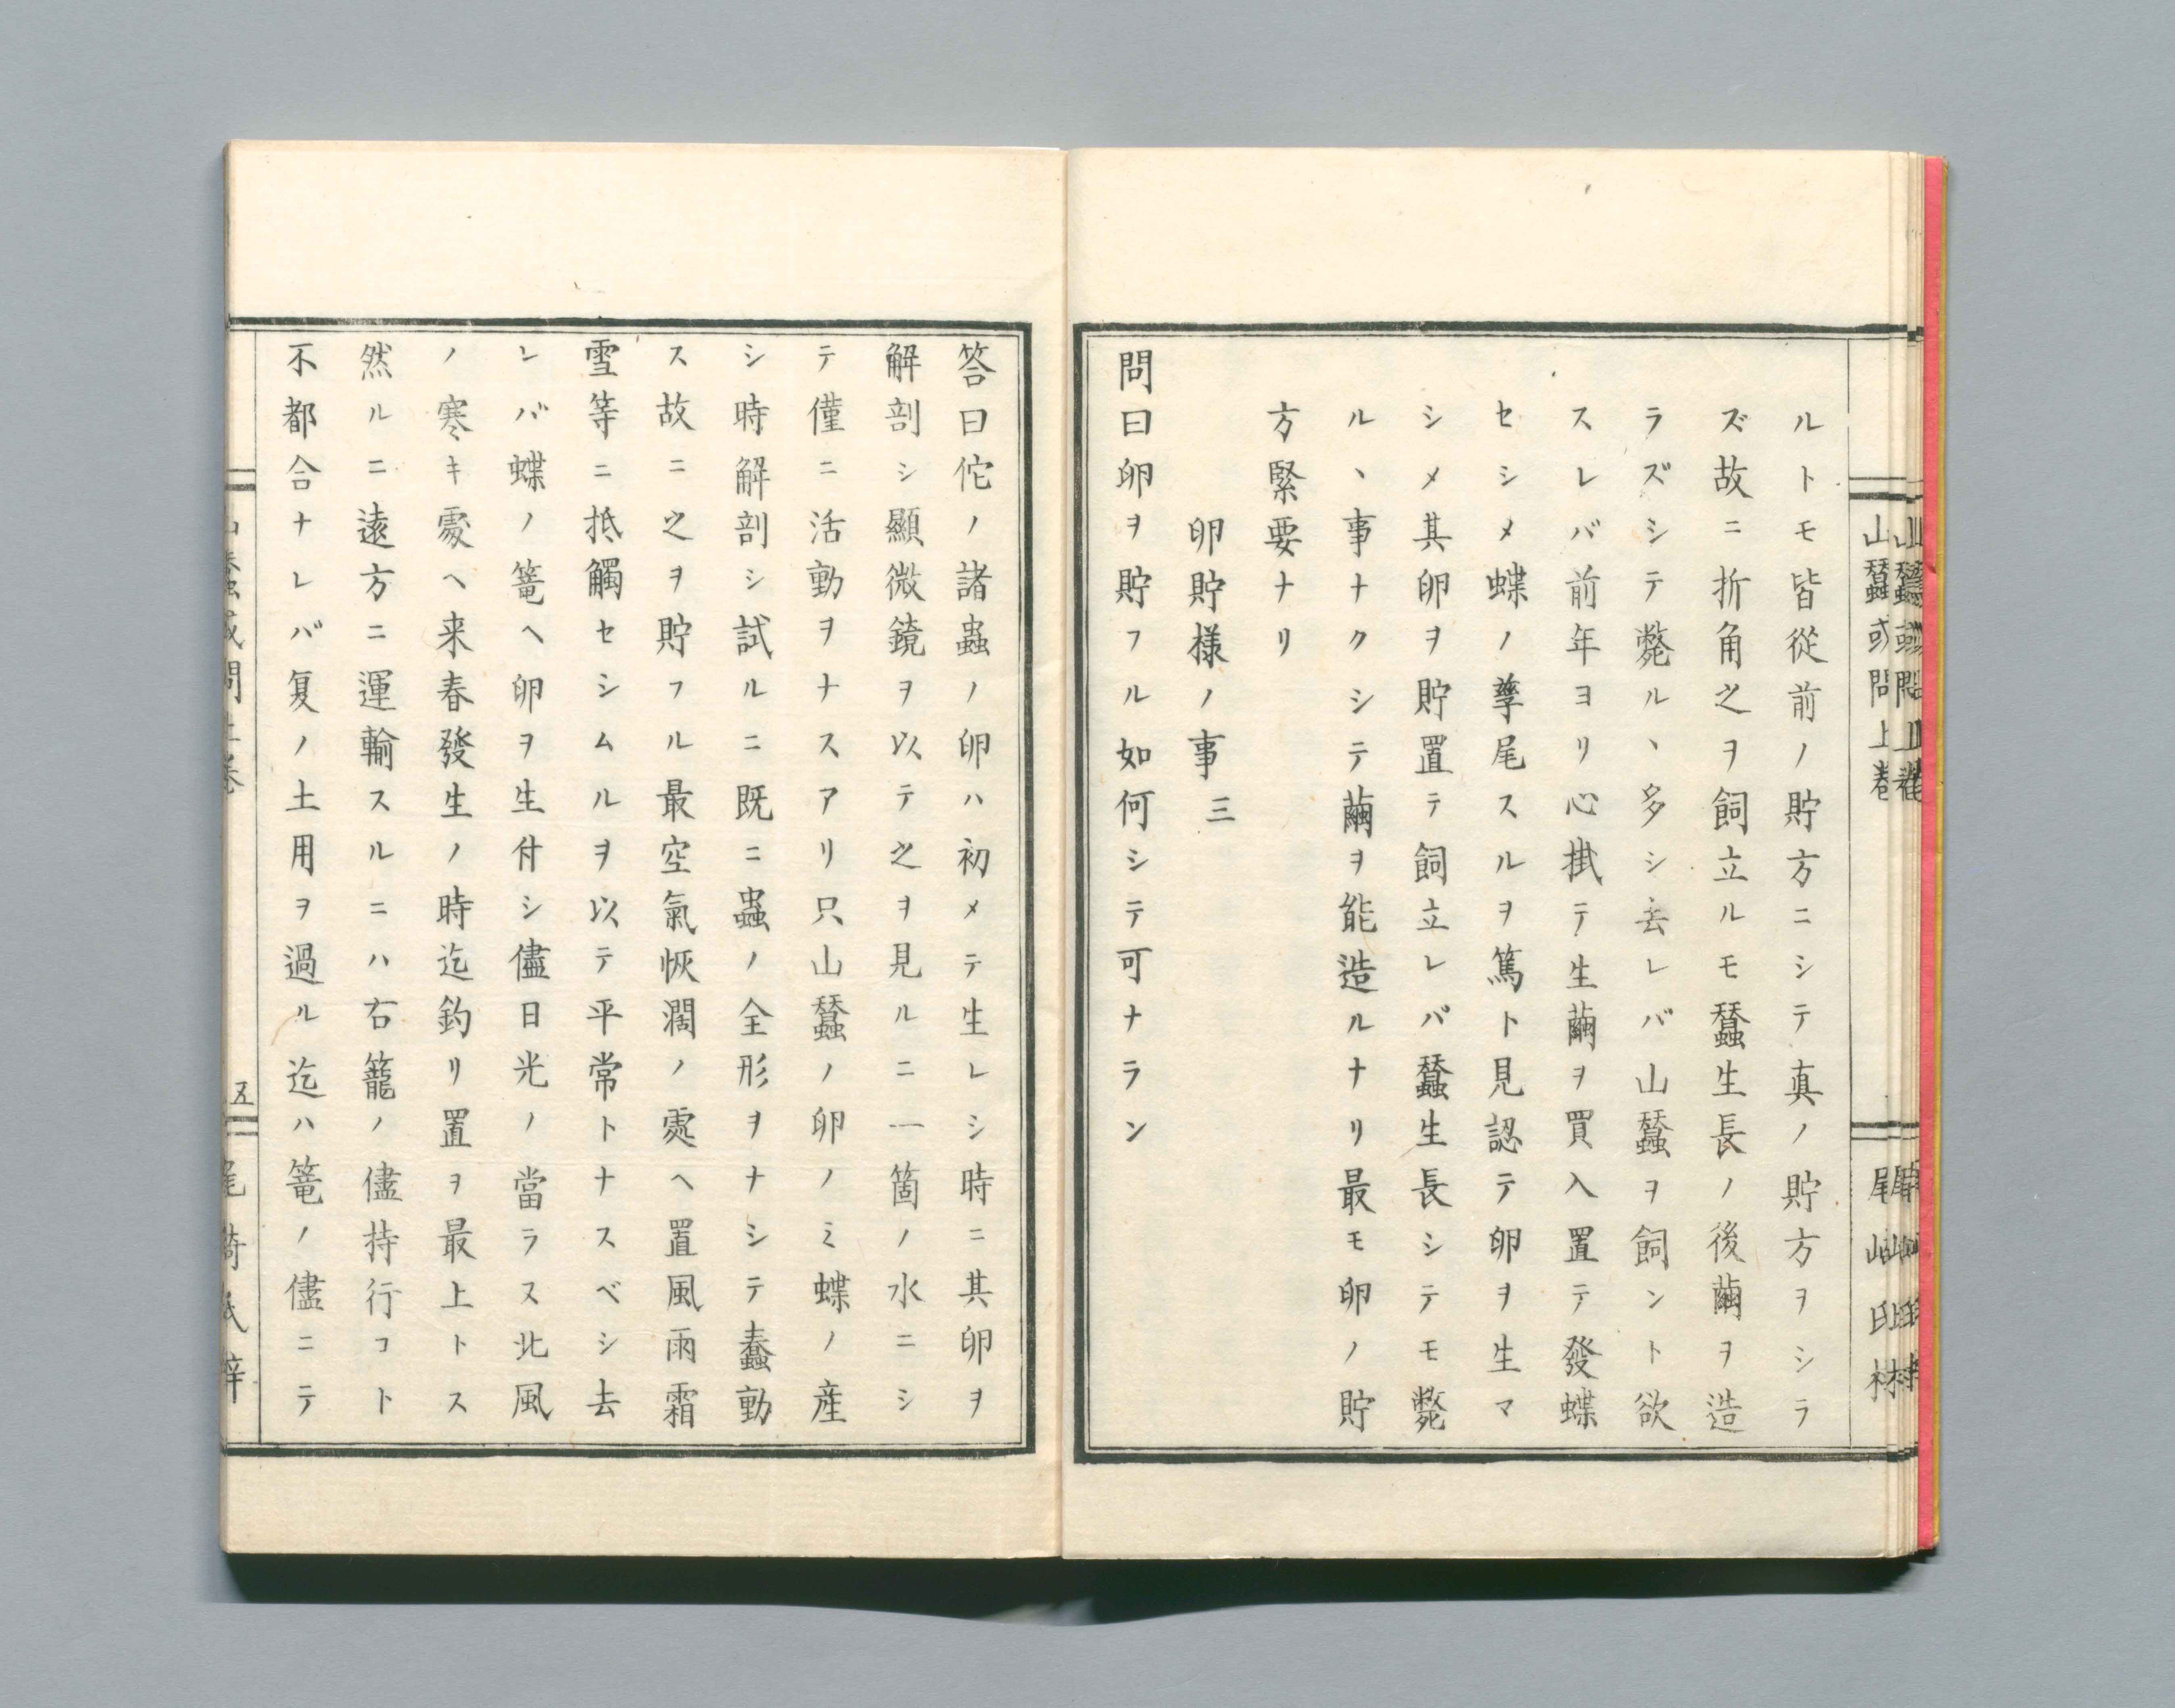 山蠶或問上巻
ルトモ皆從前ノ貯方ニシテ真ノ貯方ヲシラ
ズ故ニ折角之ヲ飼立ルモ蠶生長ノ後繭ヲ造
ラズシテ斃ルヽ多シ去レバ山蠶ヲ飼ント欲
スレバ前年ヨリ心掛テ生繭ヲ買入置テ發蝶
セシメ蝶ノ孳尾スルヲ篤ト見認テ卵ヲ生マ
シメ其卵ヲ貯置テ飼立レバ蠶生長シテモ斃
ルヽ事ナクシテ繭ヲ能造ルナリ最モ卵ノ貯
方緊要ナリ
卵貯様ノ事 三
問曰卵ヲ貯フル如何シテ可ナラン
答曰佗ノ諸蟲ノ卵ハ初メテ生レシ時ニ其卵ヲ
解剖シ顯微鏡ヲ以テ之ヲ見ルニ一箇ノ水ニシ
テ僅ニ活動ヲナスアリ只山蠶ノ卵ノミ蝶ノ産
シ時解剖シ試ルニ既ニ蟲ノ全形ヲナシテ蠢動
ス故ニ之ヲ貯フル最空氣恢濶ノ處ヘ置風雨霜
雪等ニ抵觸セシムルヲ以テ平常トナスベシ去
レバ蝶ノ篭ヘ卵ヲ生付シ儘日光ノ當ラス北風
ノ寒キ處ヘ来春發生ノ時迄釣リ置ヲ最上トス
然ルニ遠方ニ運輸スルニハ右籠ノ儘持行コト
不都合ナレバ复ノ土用ヲ過ル迄ハ篭ノ儘ニテ
山蠶或問上巻
五